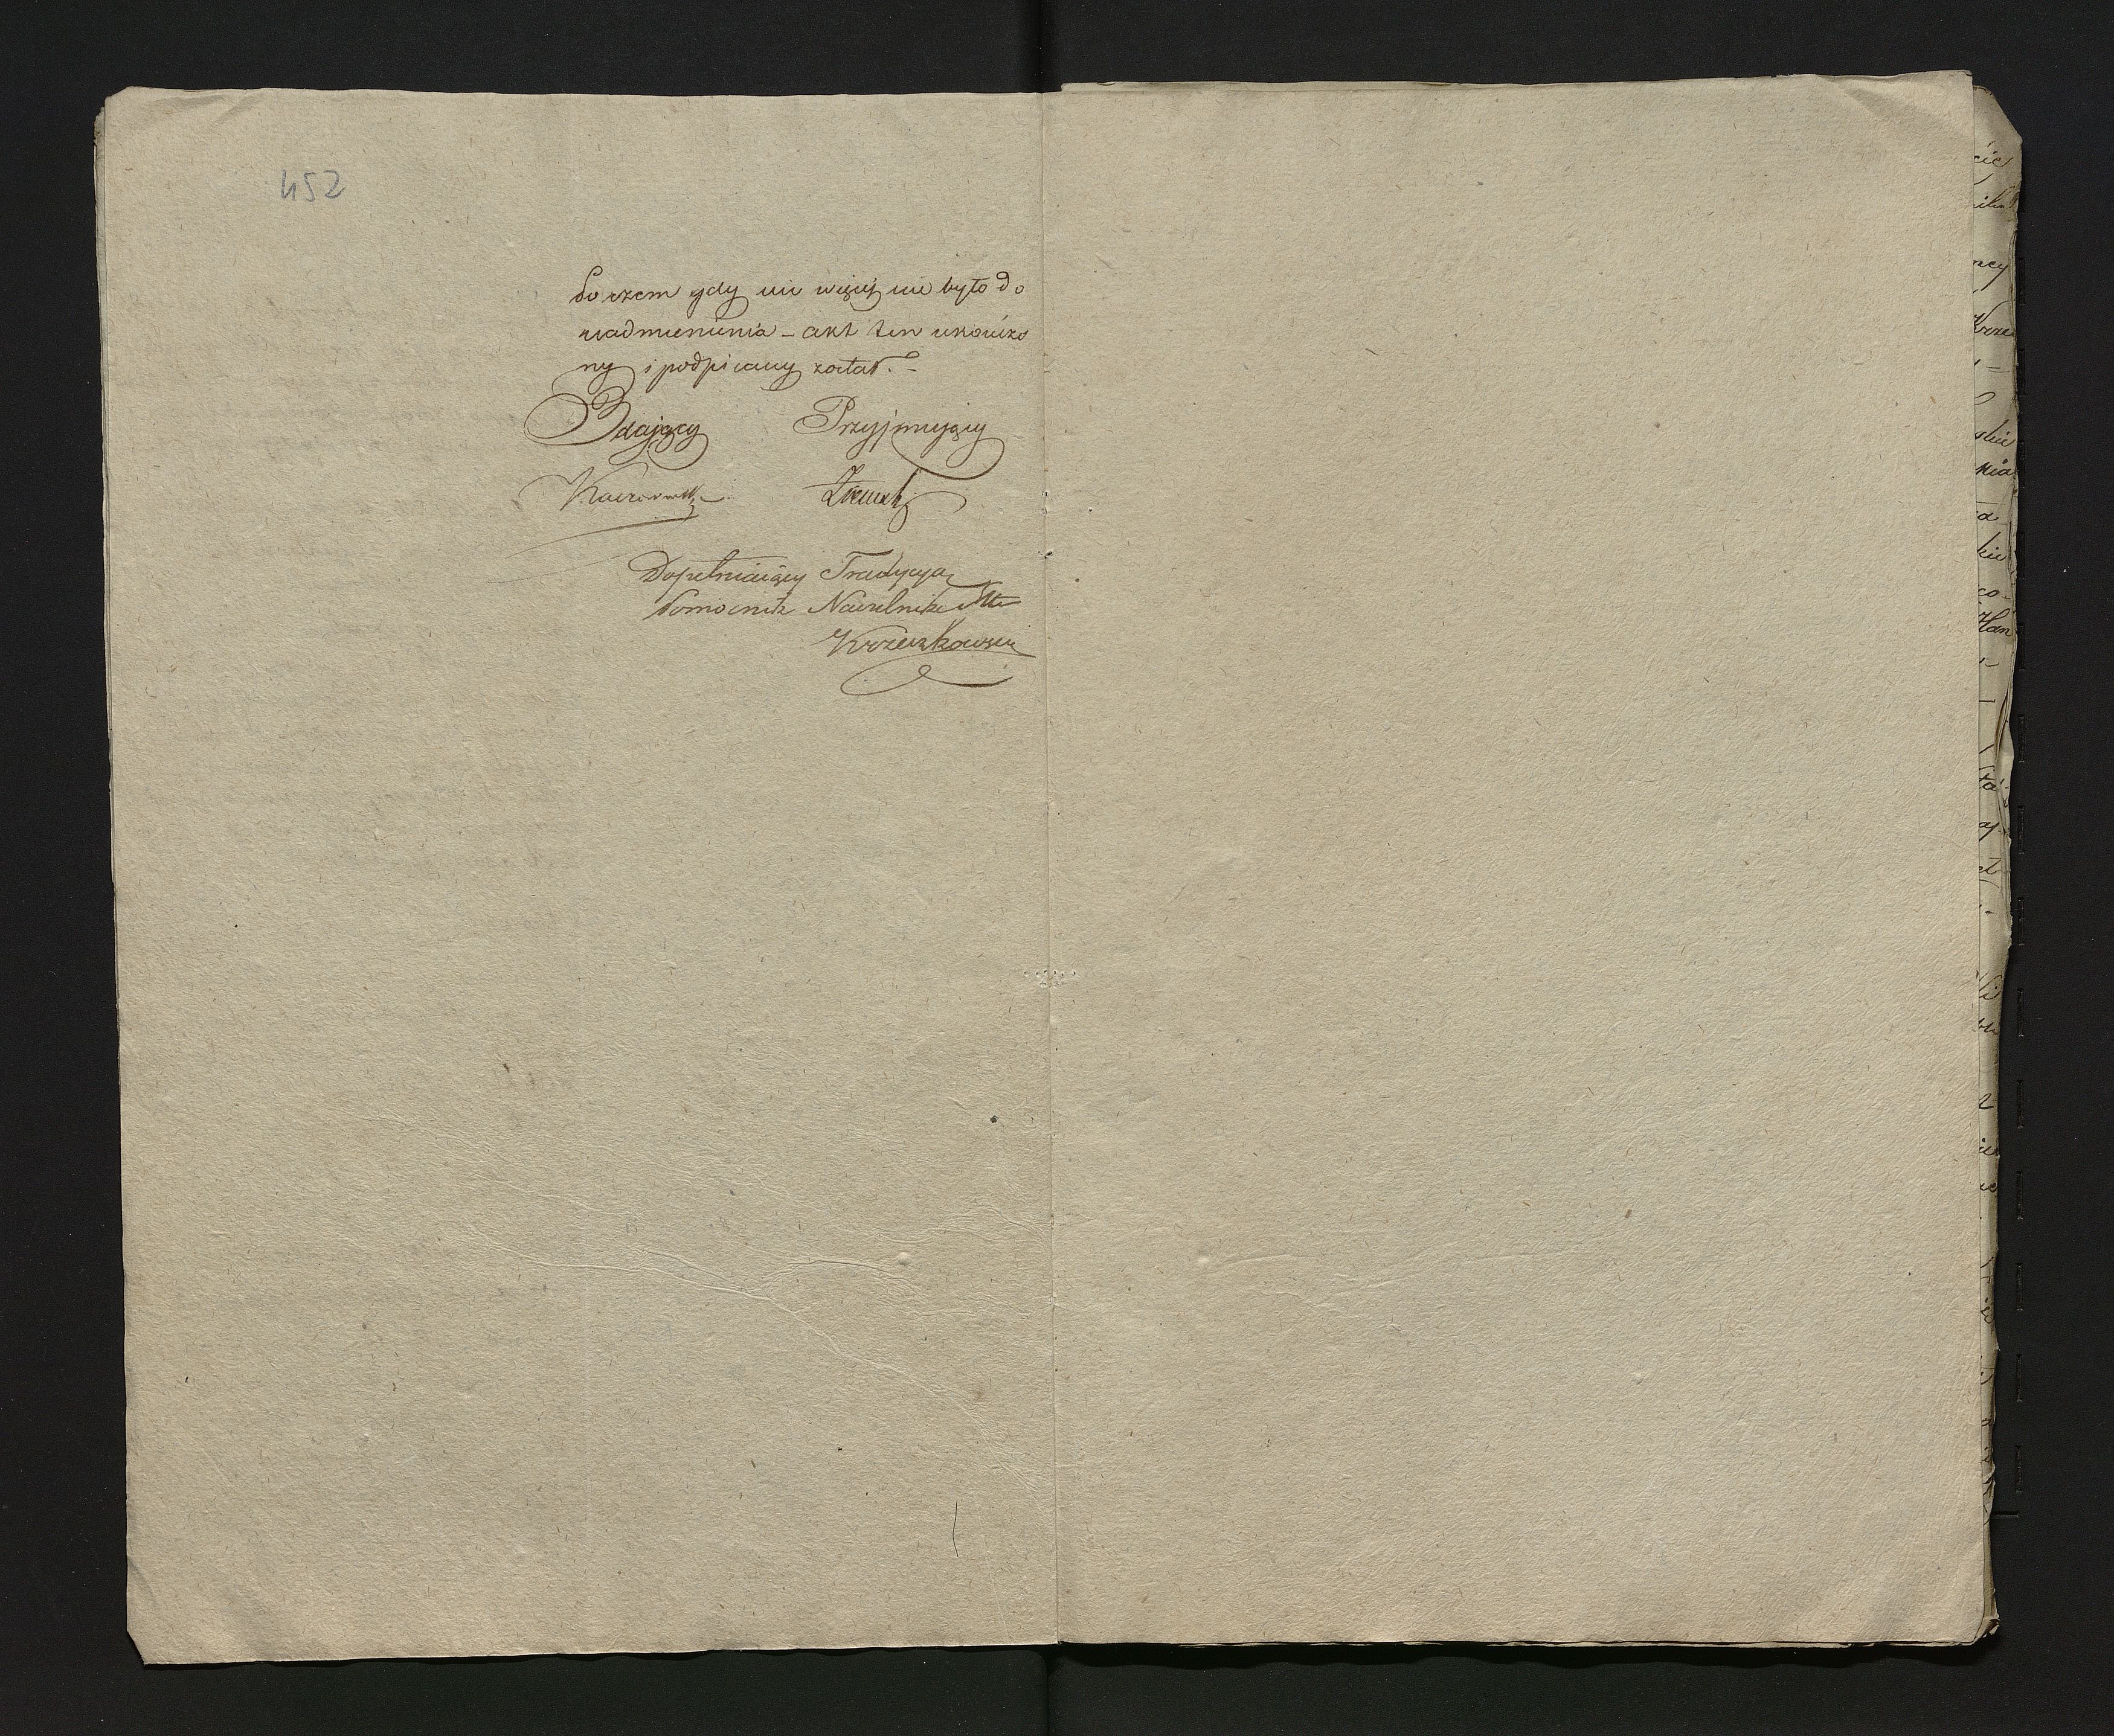 452
Po czem gdy nic więcej nie było do
nadmienienia – akt ten ukończo
ny i podpisany został. –
Zdający Przyjmujący
Kaczorowski
Dopełniaiący Tradycyą
Pomocnik Naczelnika
Krzeczkowski